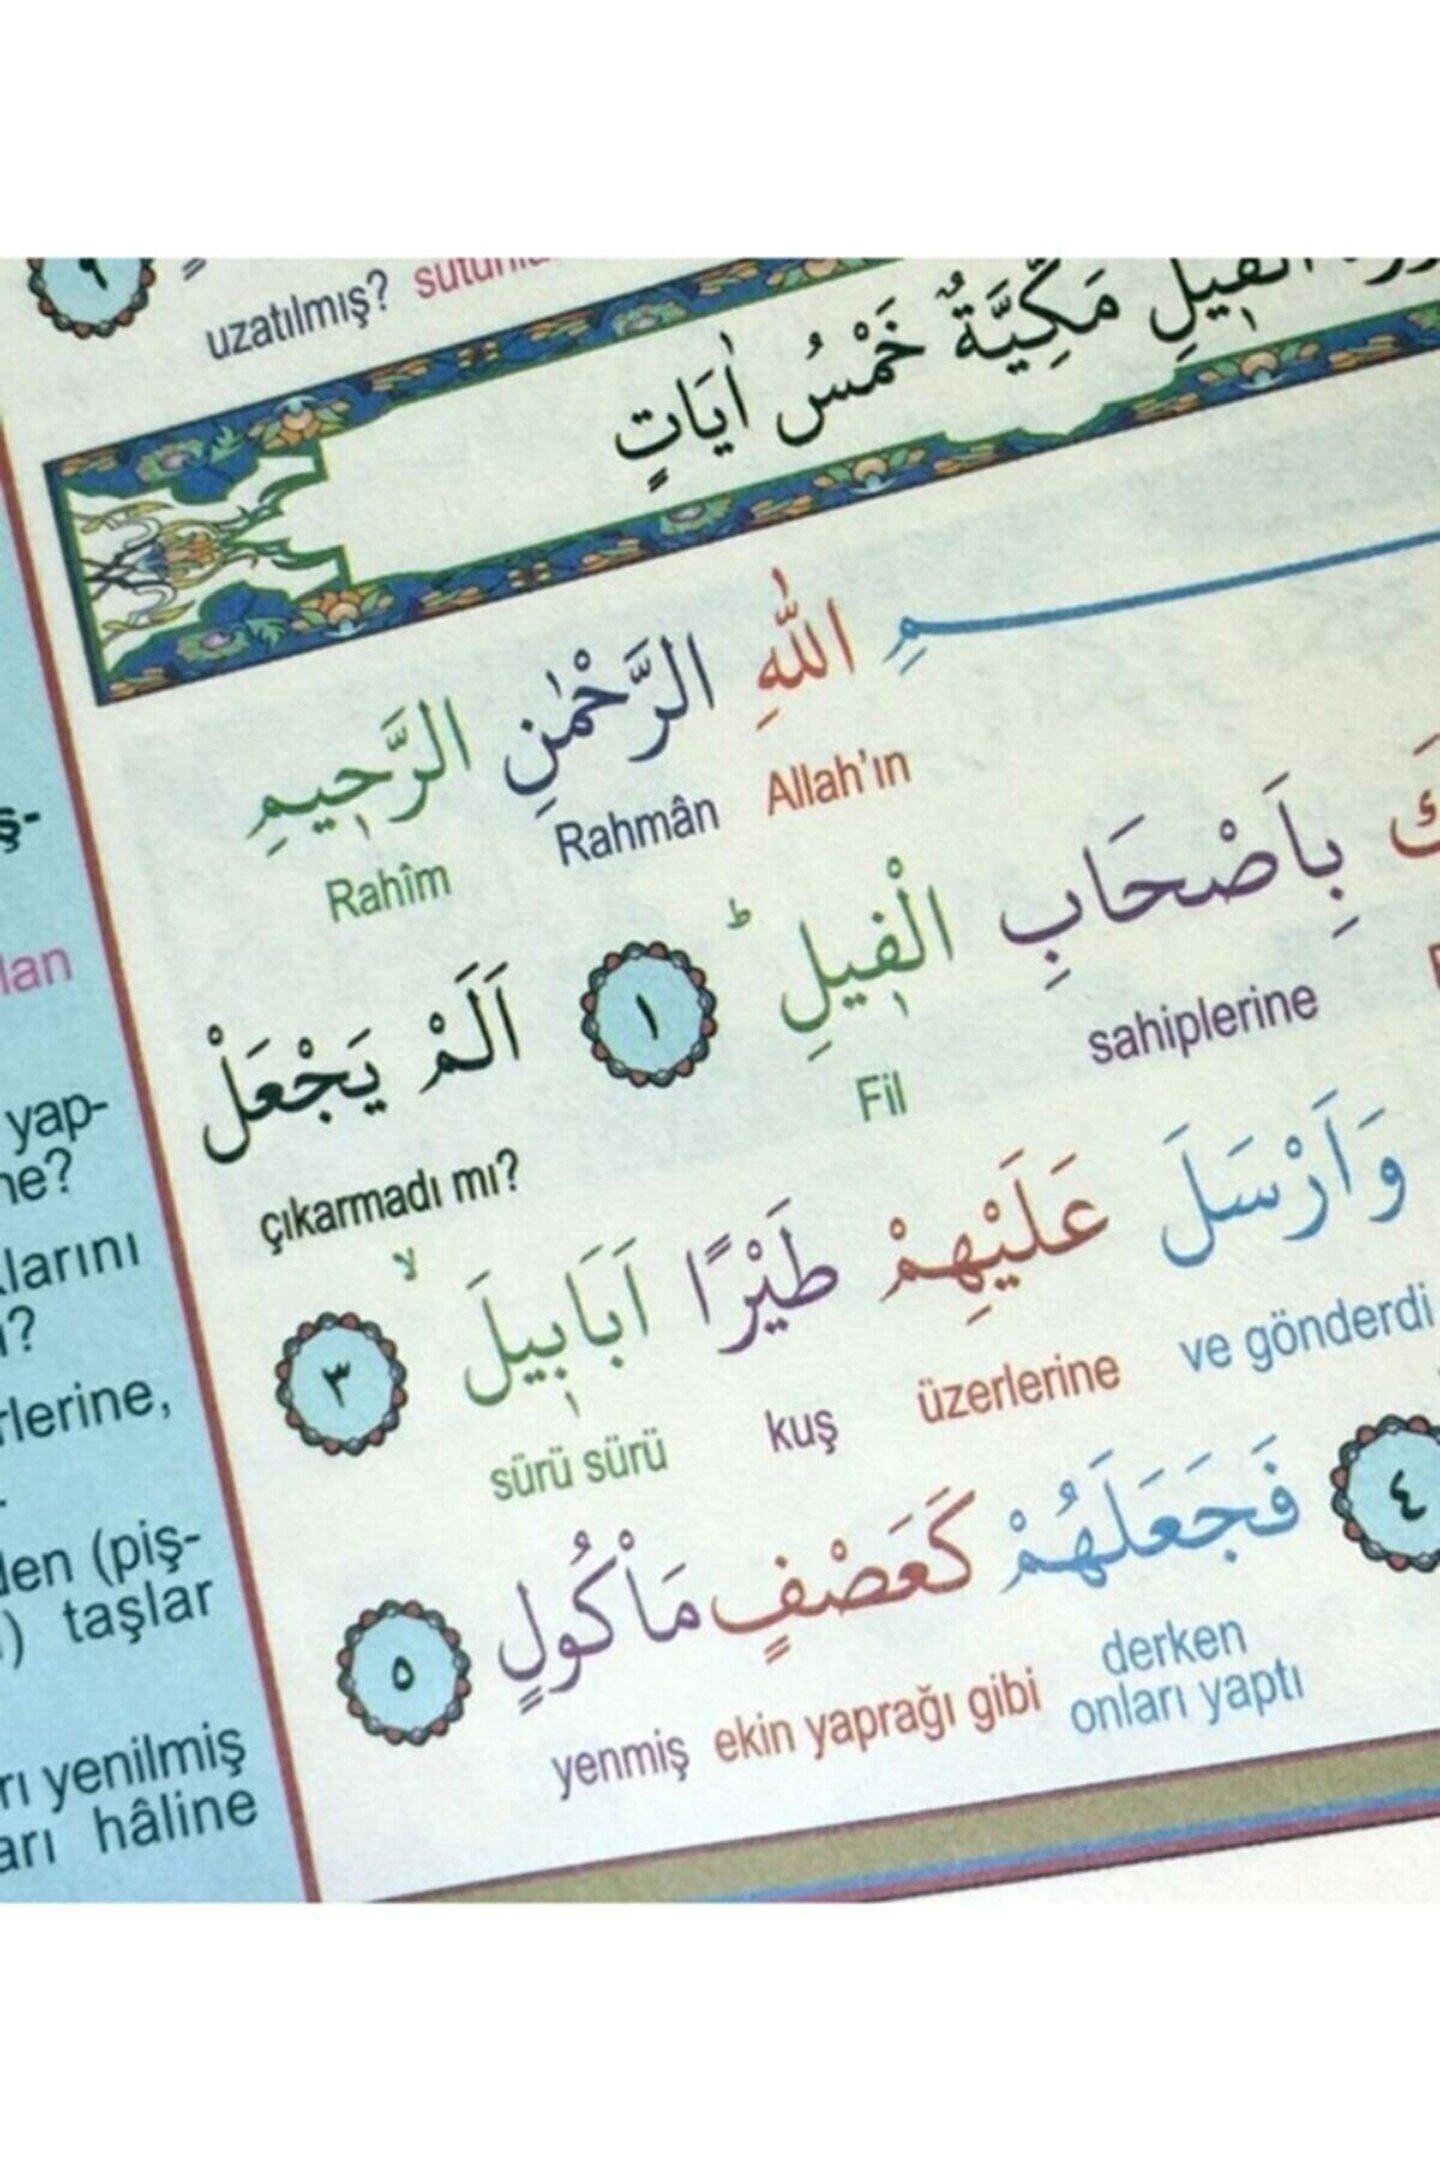 ٩
uzatılmış?
الْفٖيلِ مَكِّيَّةٌ خَمْسُ اٰيَاتٍ
اللّٰهِ الرَّحْمٰنِ الرَّحٖيمِ
Allah’ın Rahmân Rahîm
بِاَصْحَابِ الْفٖيلِؕ ١ اَلَمْ يَجْعَلْ
sahiplerine Fil çıkarmadı mı?
وَاَرْسَلَ عَلَيْهِمْ طَيْرًا اَبَابٖيلَۙ ٣
ve gönderdi üzerlerine kuş sürü sürü
٤ فَجَعَلَهُمْ كَعَصْفٍ مَاْكُولٍ ٥
derken onları yaptı ekin yaprağı gibi yenmiş
yap-
(piş-
taşlar
yenilmiş
hâline